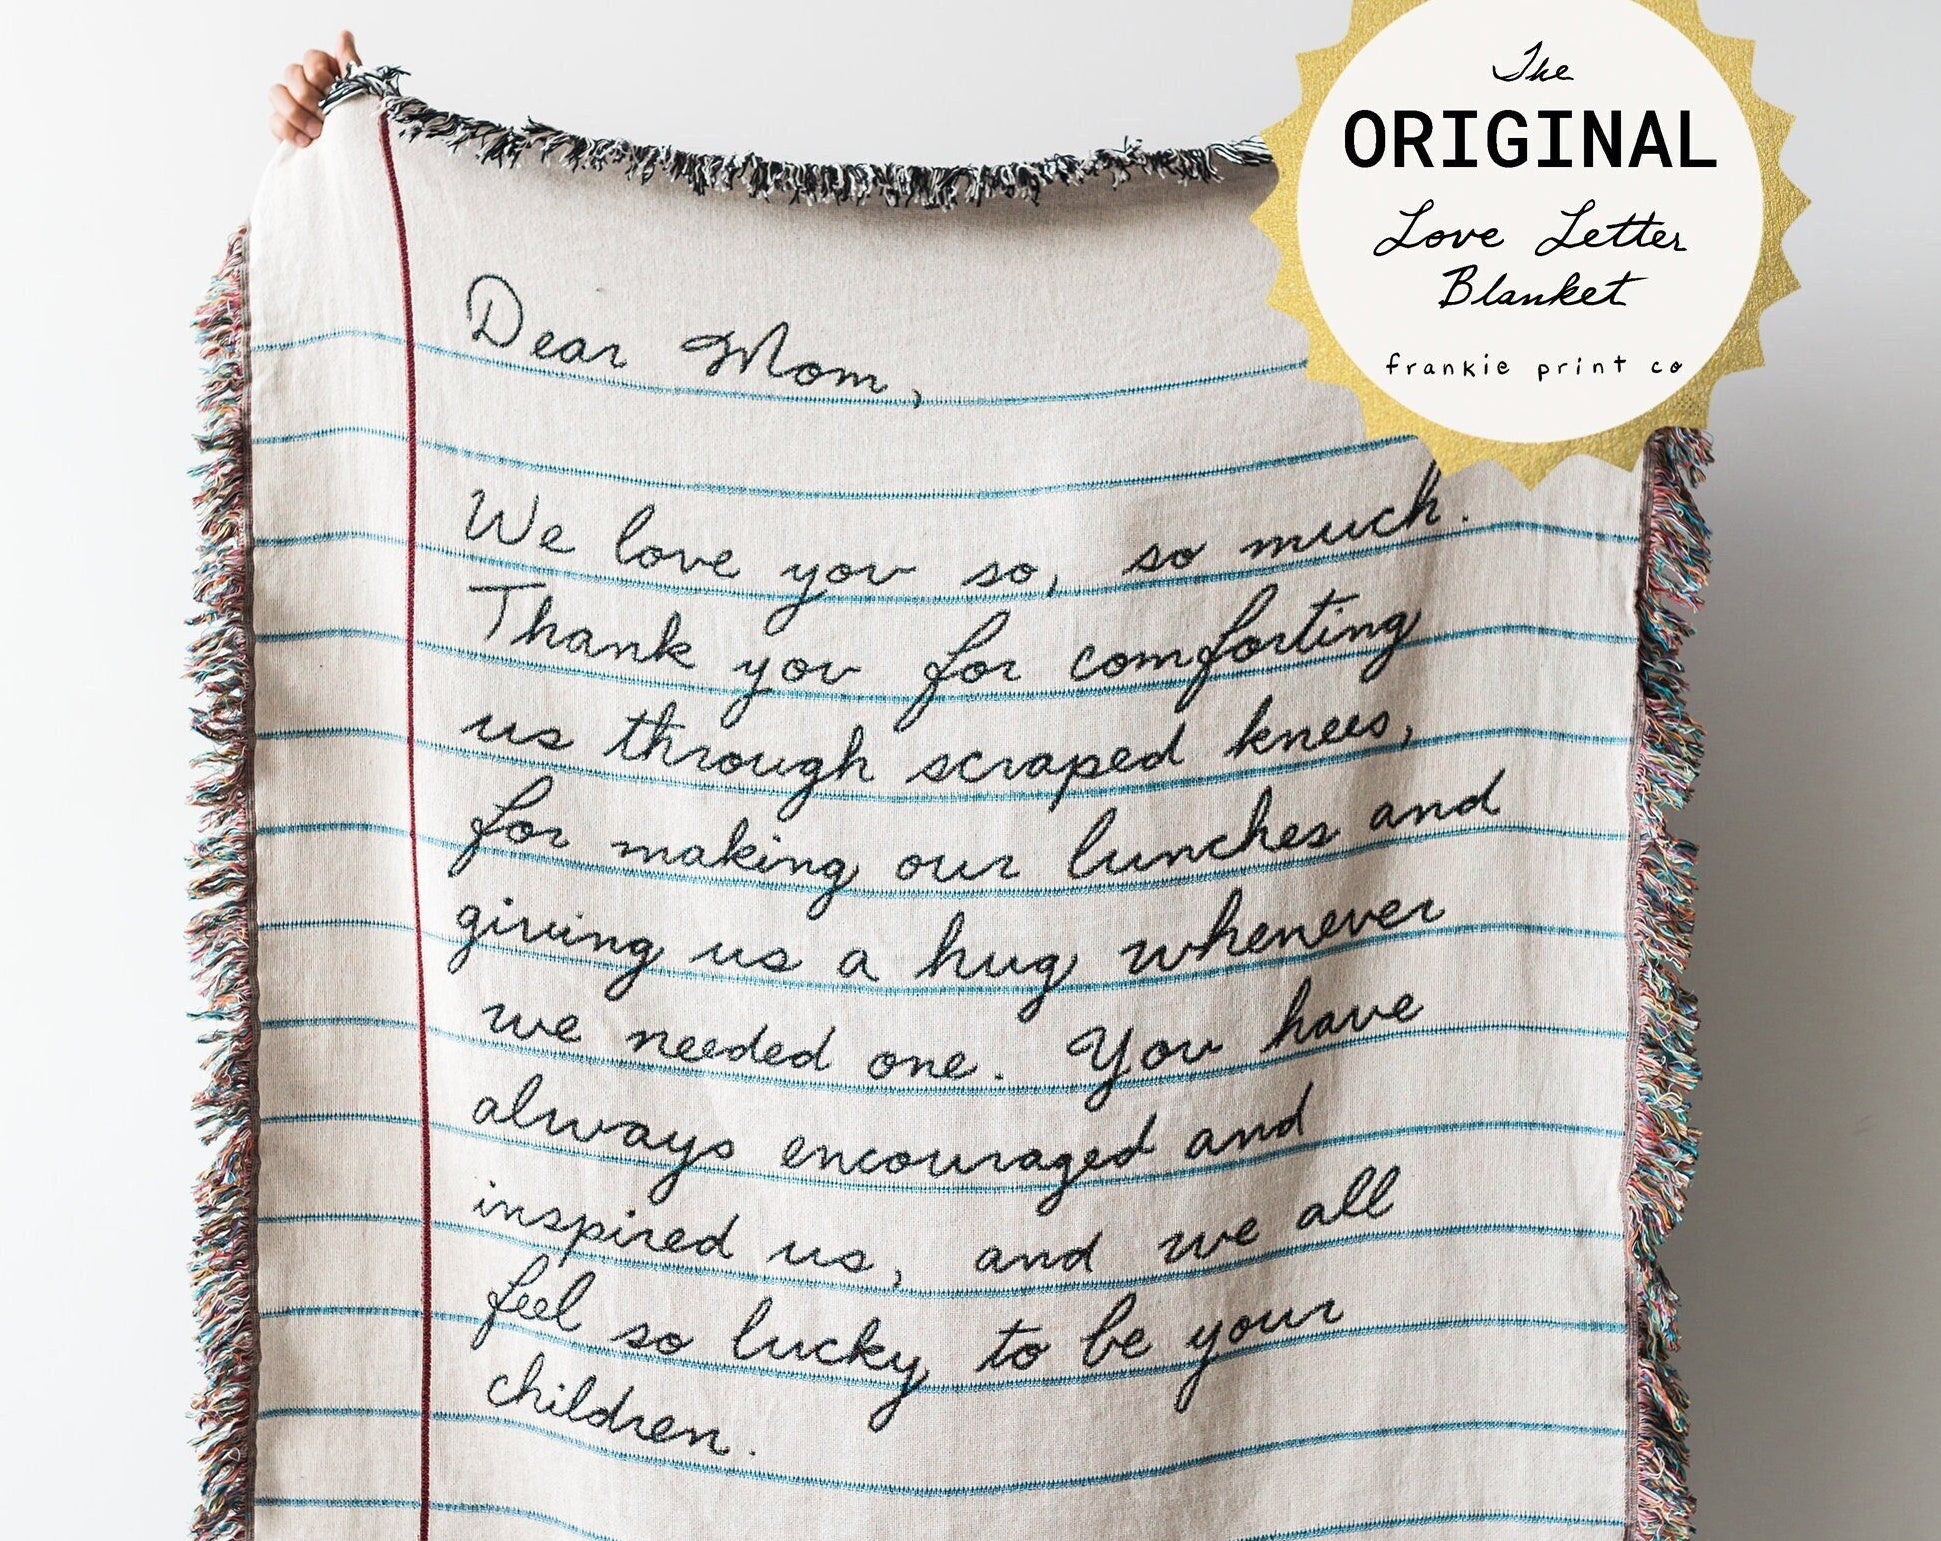 The
ORIGINAL
Love Letter
Blanket
frankie print co
Dear Mom,
We love you so, so much.
Thank you for comforting
us through scraped knees,
for making our lunches and
giving us a hug whenever
we needed one. You have
always encouraged and
inspired us, and we all
feel so lucky to be your
children.